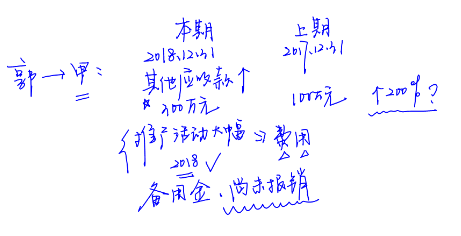 本期 上期
2018.12.31 2017.12.31
郭→甲: 其他应收款↑
300万元 100万元 ↑200%?
推广活动大幅 ⇒ 费用
2018 ✓
备用金.尚未报销